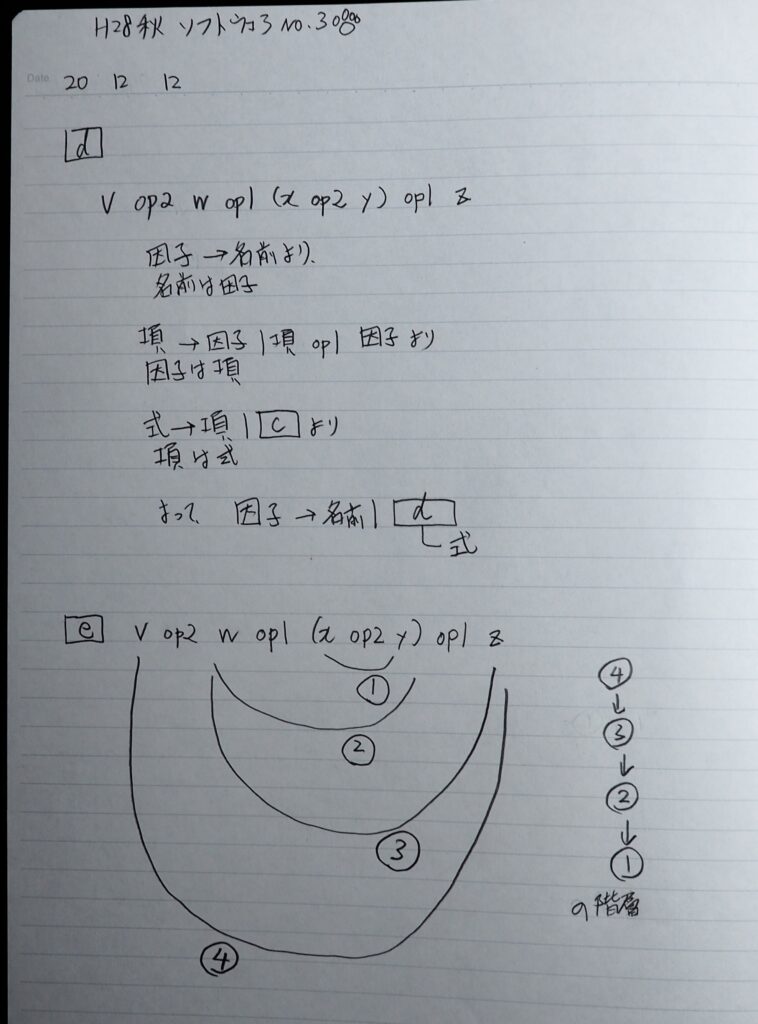 H28秋 ソフトウェア No.3
Date 20 12 12
d
V op2 w op1 (x op2 y) op1 z
因子→名前より、
名前は因子
項→因子|項 op1 因子より
因子は項
式→項|c より
項は式
よって 因子→名前|d
式
e V op2 w op1 (x op2 y) op1 z
①
②
③
④
④
↓
③
↓
②
↓
①
の階層